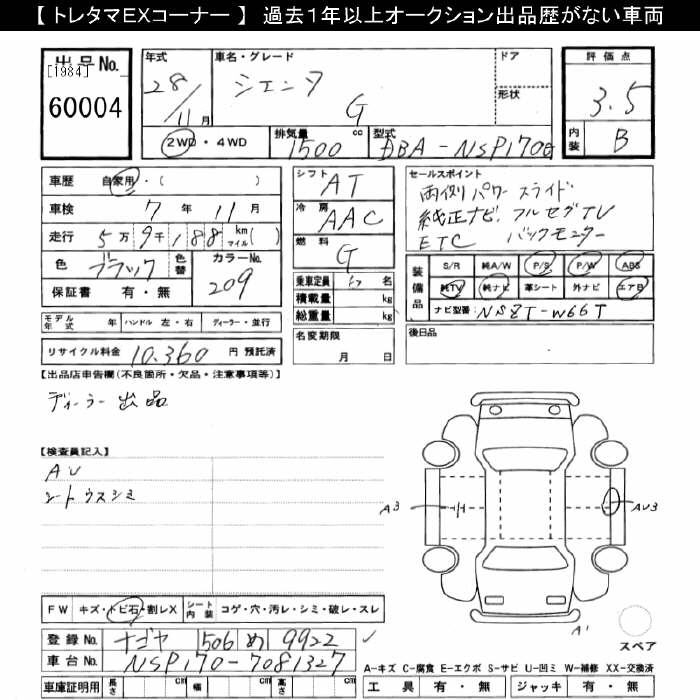 【 トレタマEXコーナー 】 過去1年以上オークション出品歴がない車両
出品No.
[1984]
60004
年式
28/11月
車名・グレード
シエンタ
G
ドア
形状
評価点
3.5
内装
B
2WD・4WD
排気量
1500 cc
型式
DBA-NSP170G
車歴 自家用・( )
車検 7年 11月
走行 5万9千188 km マイル( )
色 ブラック 色替
カラーNo. 209
保証書 有・無
シフト AT
冷房 AAC
燃料 G
乗車定員 名
積載量 kg
総重量 kg
セールスポイント
両側パワースライド
純正ナビ. フルセグTV
ETC バックモニター
装備品
S/R 純A/W P/S P/W ABS
純TV 純ナビ 革シート 外ナビ エアB
ナビ型番: NSZT-W66T
モデル年式 年 ハンドル 左・右 ディーラー・並行
リサイクル料金 10.360 円 預託済
名変期限
月 日
後日品
【出品店申告欄(不良箇所・欠品・注意事項等)】
ディーラー出品
【検査員記入】
AU
シートウスシミ
A3
AU3
A1
スペア
FW キズ・トビ石・割レX シート内装 コゲ・穴・汚レ・シミ・破レ・スレ
登録No. ナゴヤ 506 め 9922
車台No. NSP170-7081327
車庫証明用 長さ cm 幅 cm 高さ cm
A-キズ C-腐食 E-エクボ S-サビ U-凹ミ W-補修 XX-交換済
工具 有・無 ジャッキ 有・無